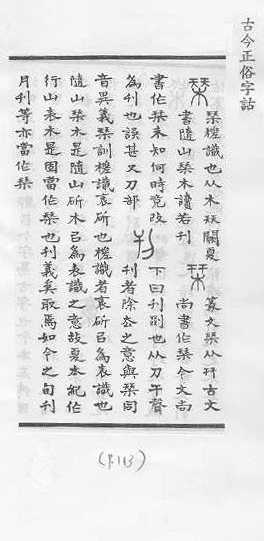 古今正俗字詁
栞槎識也从木㺿闕夏
書隨山栞木讀若刊
篆文栞从幵古文
尚書作栞今文尚
書作栞未知何時竟改
為刊也誤甚又刀部
下曰刊剟也从刀干聲
刊者除去之意與栞同
音異義栞訓槎識衺斫也槎識者衺斫㠯為表識也
隨山栞木是隨山斫木㠯為表識之意故夏本紀作
行山表木是固當作栞也刊義奚取焉如今之旬刊
月刊等亦當作栞
(P.113)